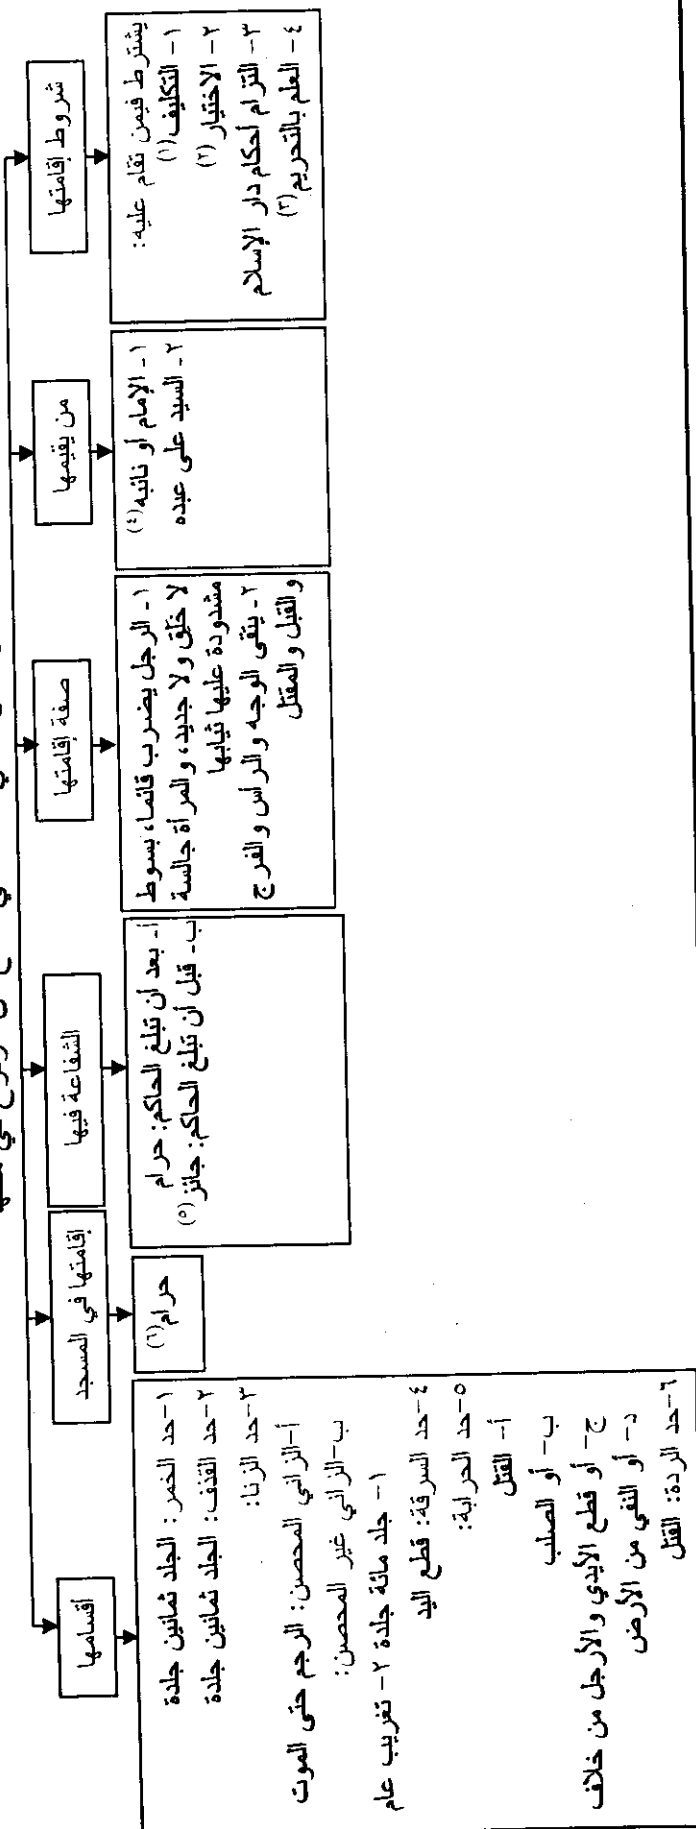 شروط إقامتها
يشترط فيمن تقام عليه:
١- التكليف(١)
٢- الاختيار(٢)
٣- التزام أحكام دار الإسلام
٤- العلم بالتحريم(٣)
من يقيمها
١- الإمام أو نائبه(٤)
٢- السيد على عبده
صفة إقامتها
١- الرجل يضرب قائما، بسوط
لا خلق ولا جديد، والمرأة جالسة
مشدودة عليها ثيابها
٢- يتقى الوجه والرأس والفرج
والقبل والمقتل
الشفاعة فيها
أ- بعد أن تبلغ الحاكم: حرام
ب- قبل أن تبلغ الحاكم: جائز(٥)
إقامتها في المسجد
حرام(٦)
أقسامها
١-حد الخمر: الجلد ثمانين جلدة
٢-حد القذف: الجلد ثمانين جلدة
٣-حد الزنا:
أ-الزاني المحصن: الرجم حتى الموت
ب-الزاني غير المحصن:
١- جلد مائة جلدة ٢- تغريب عام
٤-حد السرقة: قطع اليد
٥-حد الحرابة:
أ- القتل
ب- أو الصلب
ج- أو قطع الأيدي والأرجل من خلاف
د- أو النفي من الأرض
٦-حد الردة: القتل